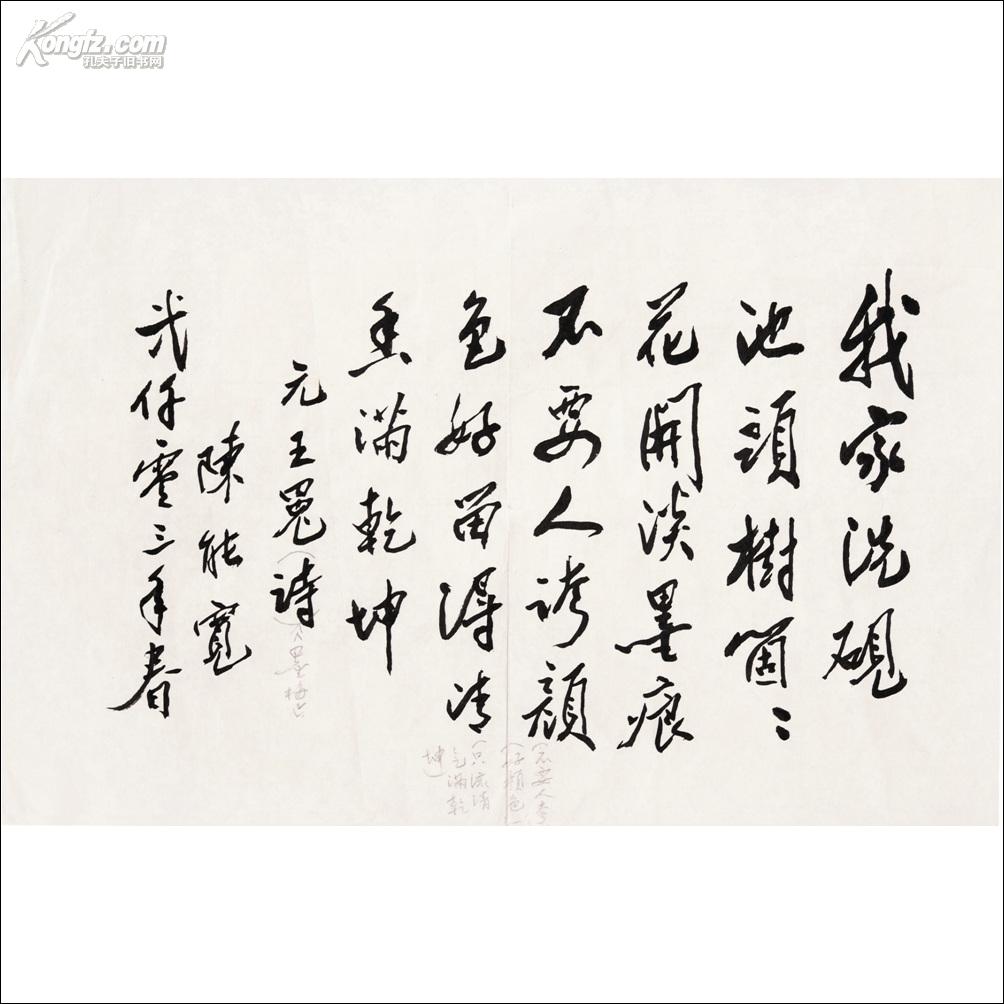 Kongfz.com
孔夫子旧书网
我家洗硯
池頭樹箇〻
花開淡墨痕
不要人誇顏
色好留得清
香滿乾坤
元王冕(詩)《墨梅》
陳能寬
弐仟零三年春
(不要人夸
(好顏色—
(只流清
气滿乾
坤)